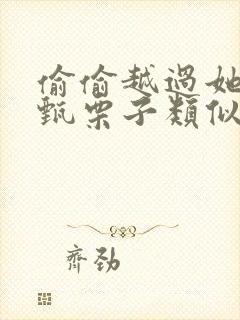 偷偷越過她
甄栗子類似
齊勁